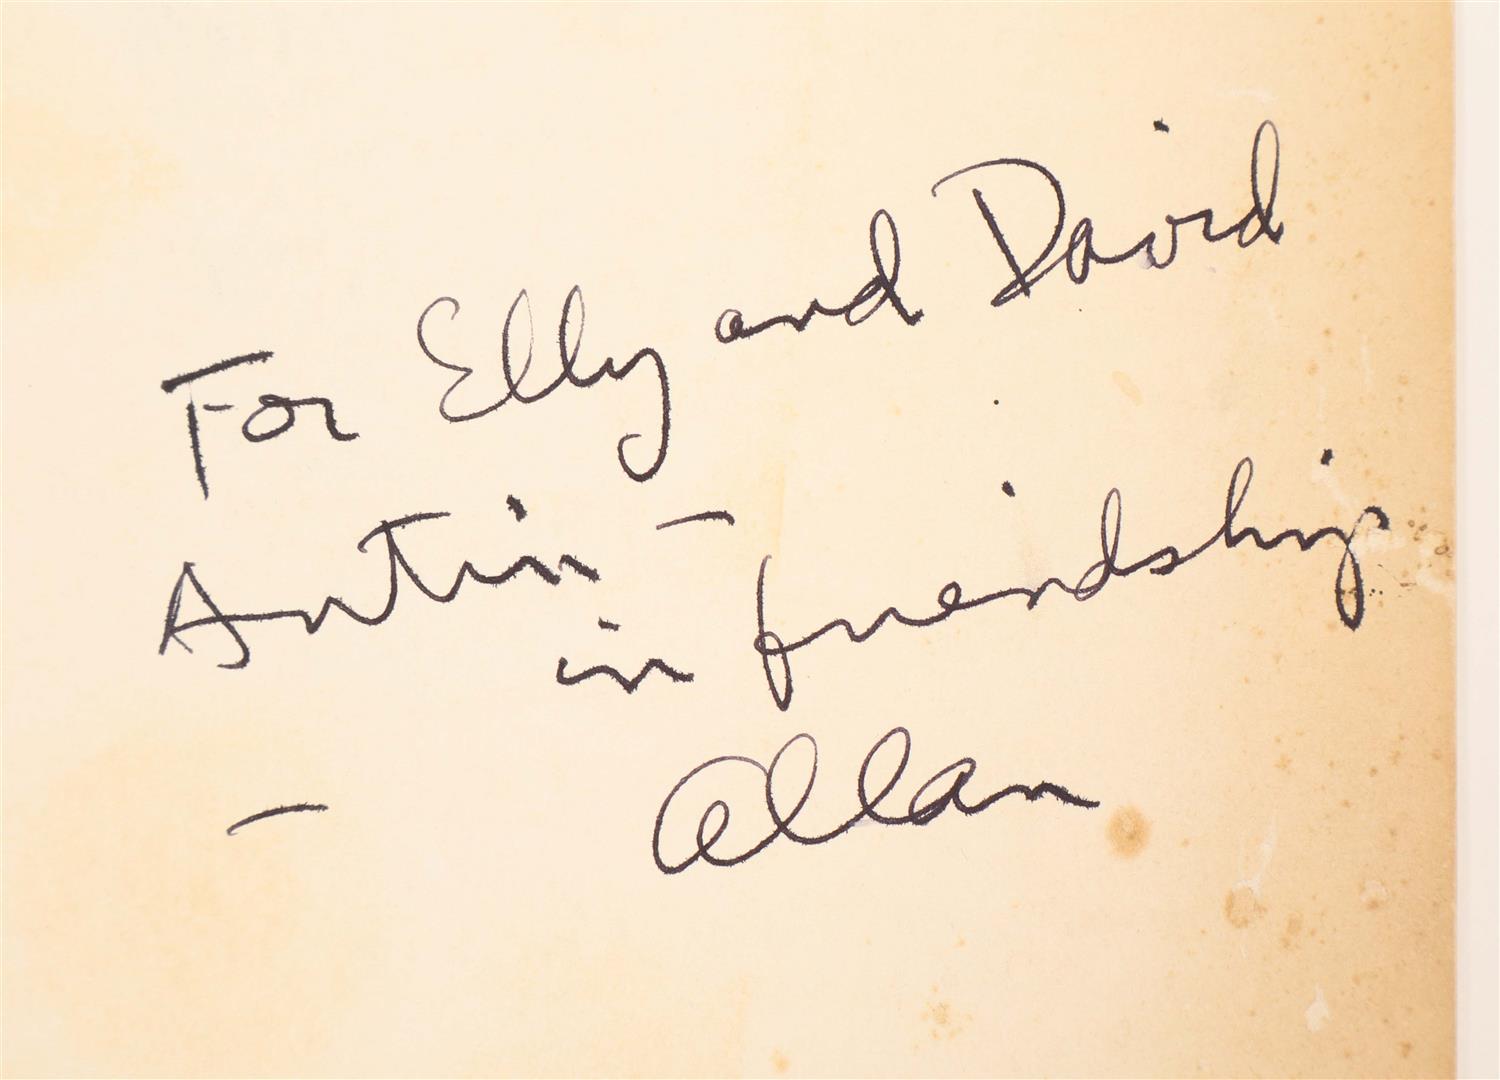 For Elly and David
Antin —
in friendship
— Allan